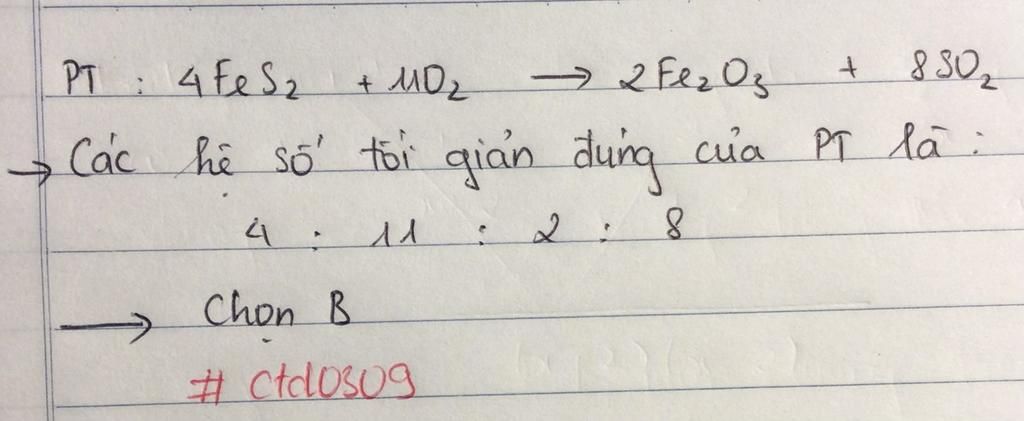 PT : 4FeS₂ + 11O₂ → 2Fe₂O₃ + 8SO₂
→ Các hệ số tối giản đúng của PT là :
4 : 11 : 2 : 8
→ Chọn B
# ctd0309